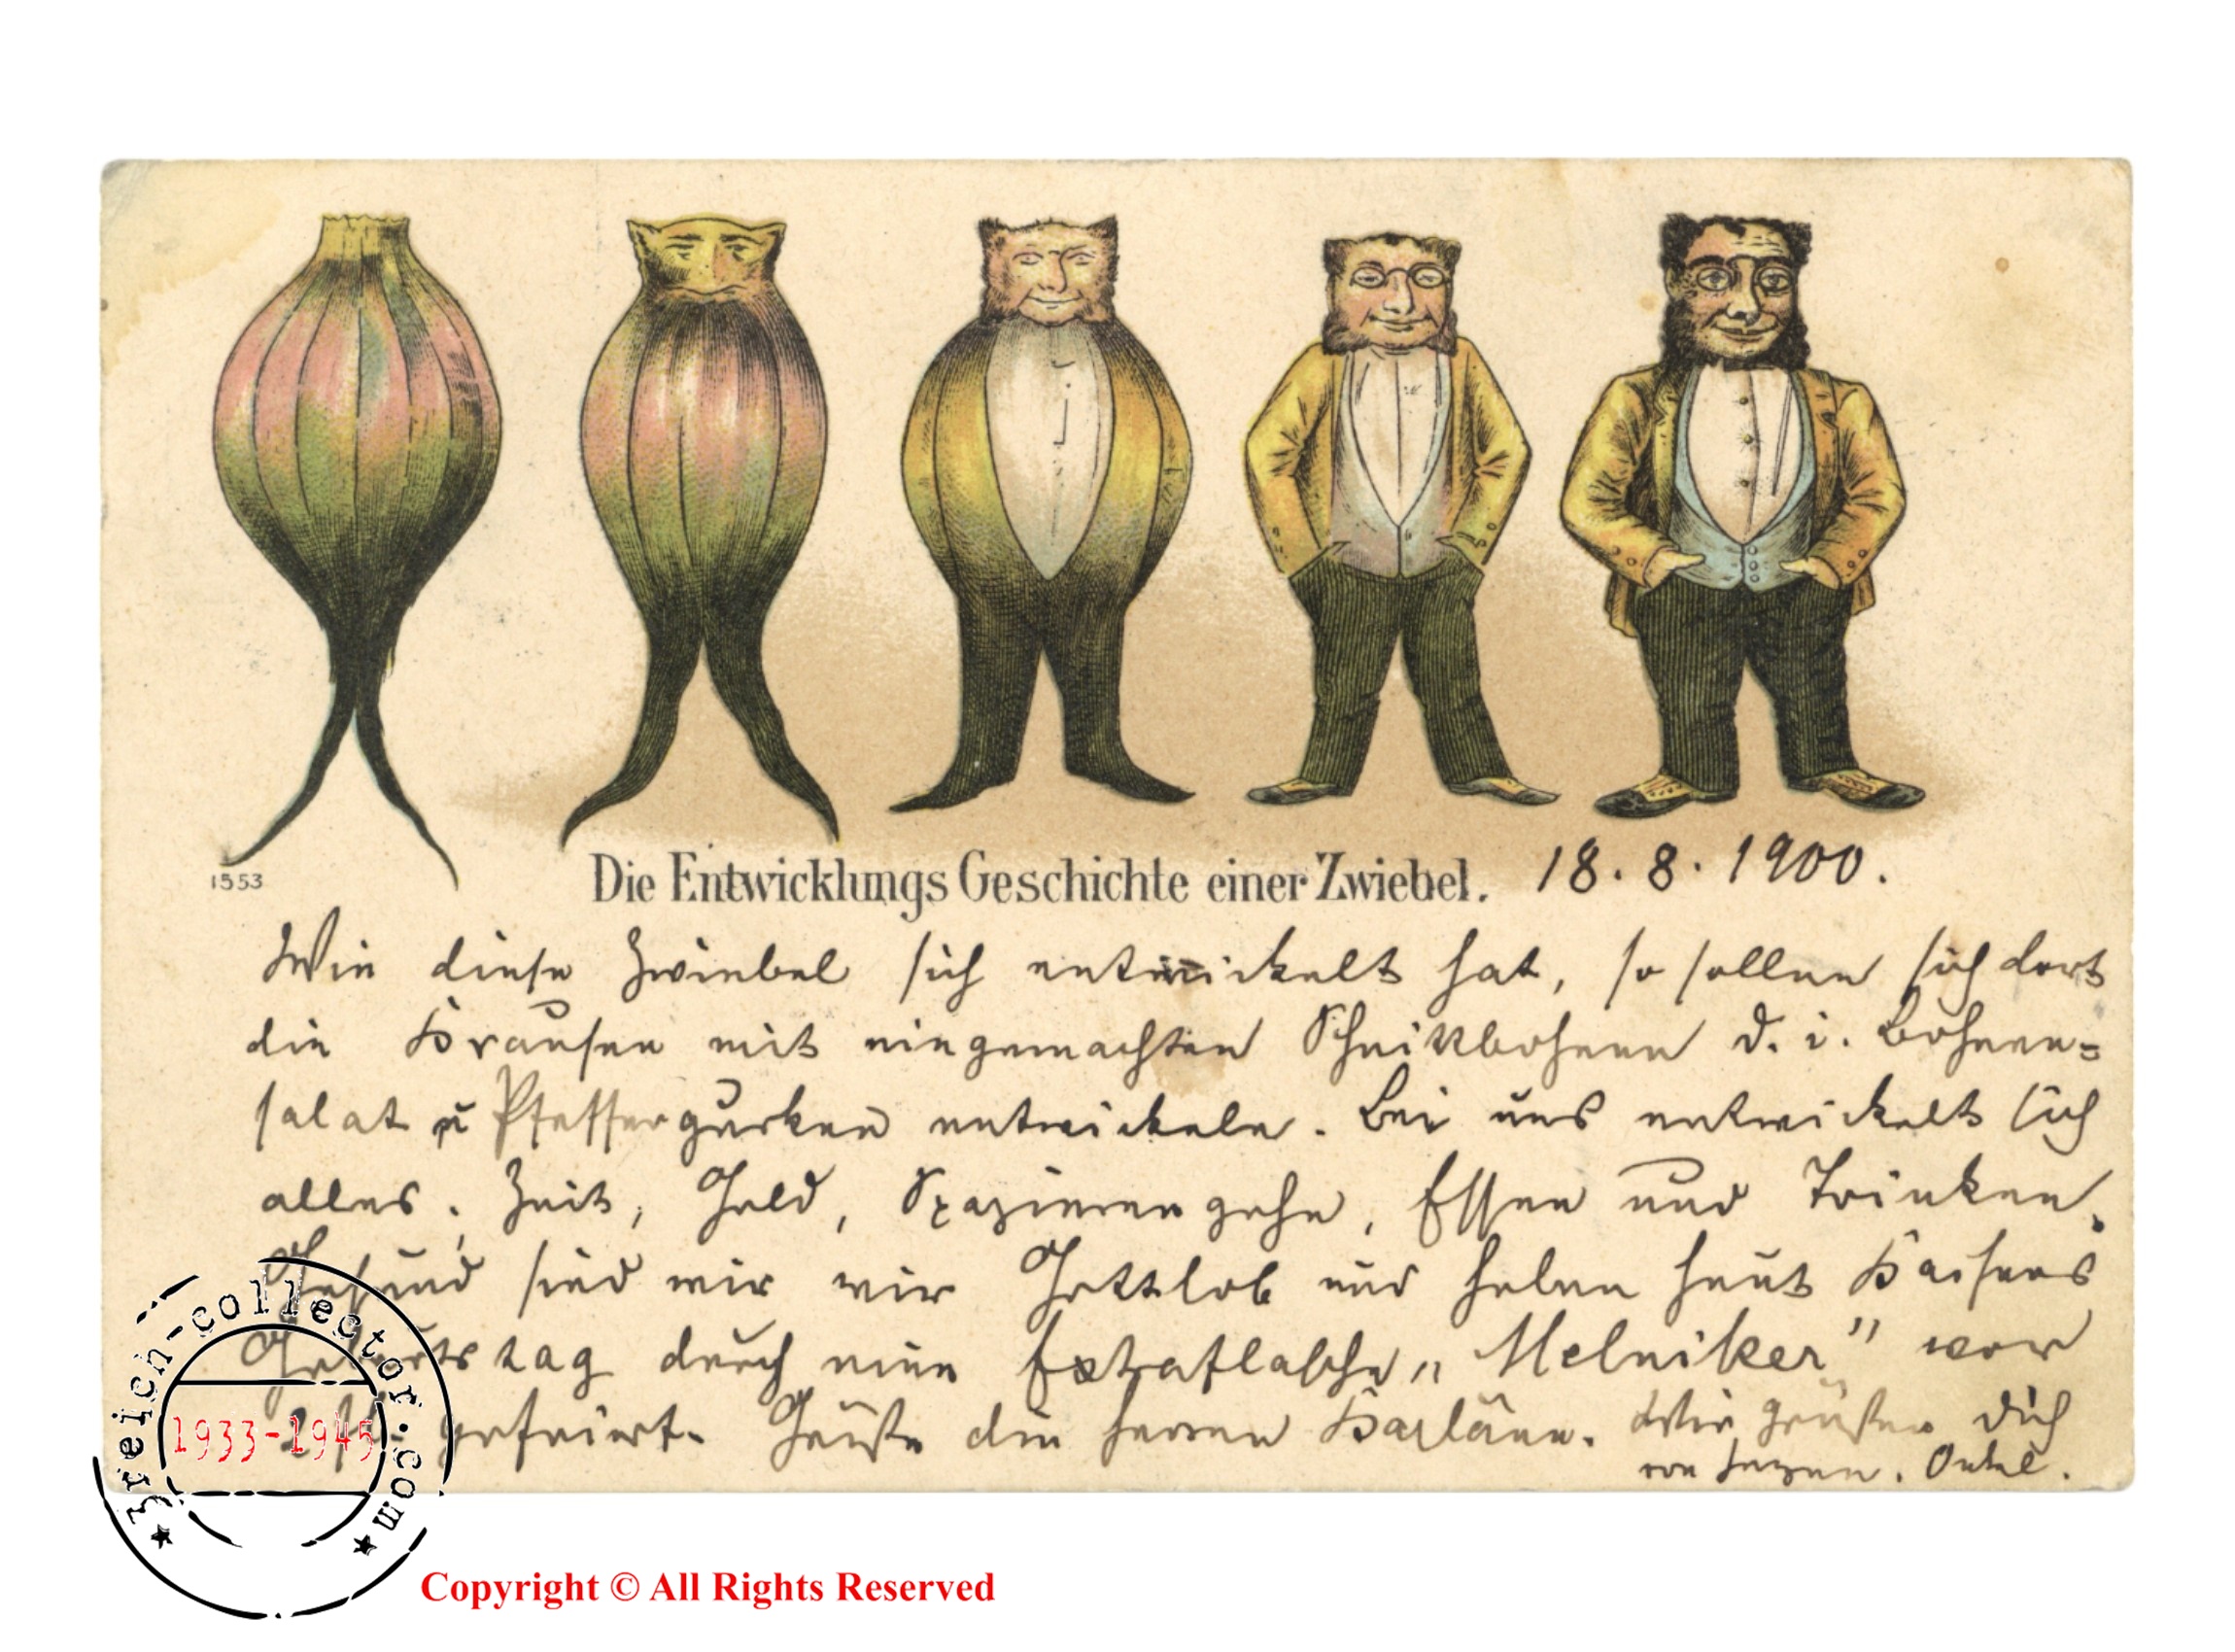 1553
Die Entwicklungs Geschichte einer Zwiebel. 18. 8. 1900.
Wie diese Zwiebel sich entwickelt hat, so sollen sich dort
die Krausen mit eingemachten Schnittbohnen d. i. Bohnen=
salat u Pfeffergurken entwickeln. Bei uns entwickelt sich
alles, Zeit, Geld, Spazierengehn, Essen und Trinken.
Gesund sind wir wir Gottlob und haben heut Kaisers
Geburtstag durch eine Extraflasche „Melniker" vor
gefeiert. Grüße die Herren. Wir grüßen Dich
von Herzen. Onkel.
3reich-collector.com
1933-1945
Copyright © All Rights Reserved